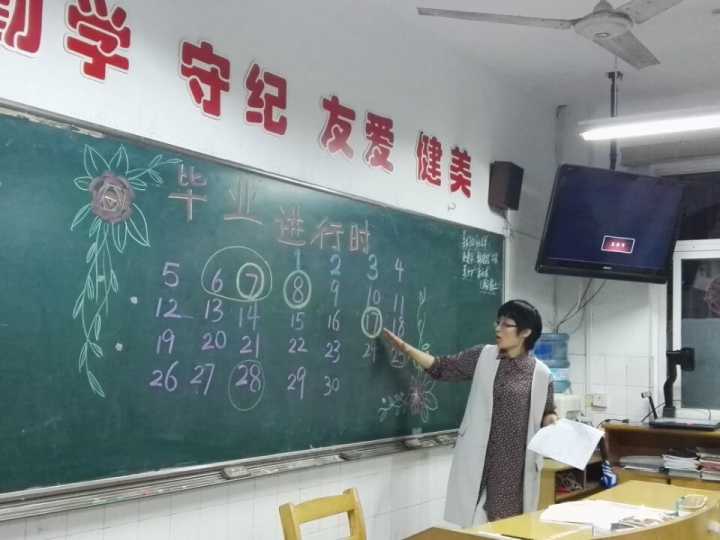 勤学 守纪 友爱 健美
毕业进行时
1 2 3 4
5 6 7 8 9 10 11
12 13 14 15 16 17 18
19 20 21 22 23 24 25
26 27 28 29 30